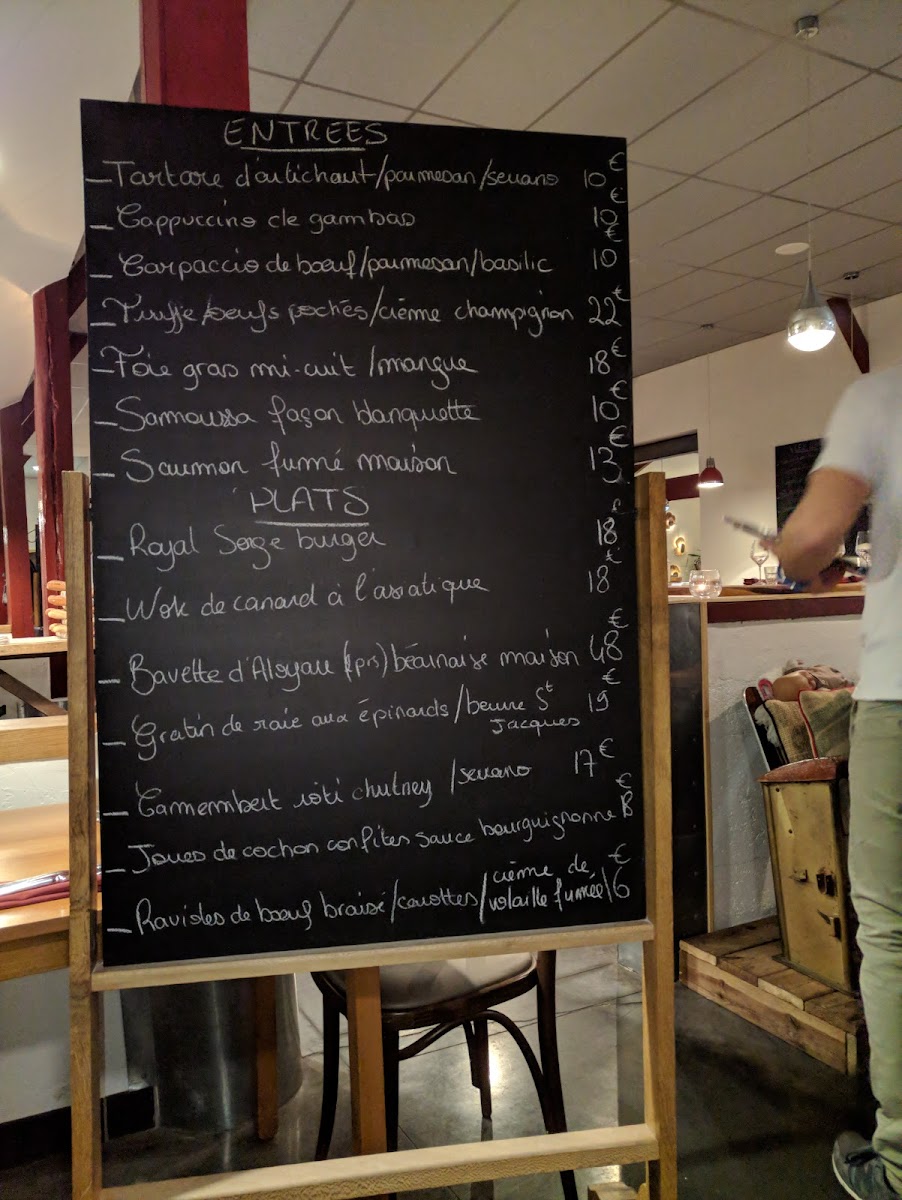 ENTREES
- Tartare d'artichaut/parmesan/serrano 10€
- Cappuccino de gambas 10€
- Carpaccio de boeuf/parmesan/basilic 10€
- Truffe/oeufs pochés/crème champignon 22€
- Foie gras mi-cuit/mangue 18€
- Samoussa façon blanquette 10€
- Saumon fumé maison 13€
PLATS
- Royal Serge burger 18€
- Wok de canard à l'asiatique 18€
- Bavette d'Aloyau (prs) béarnaise maison 48€
- Gratin de raie aux épinards/beurre St Jacques 19€
- Camembert rôti chutney/serrano 17€
- Joues de cochon confites sauce bourguignonne €
- Ravioles de boeuf braisé/carottes/crème de volaille fumée 16€